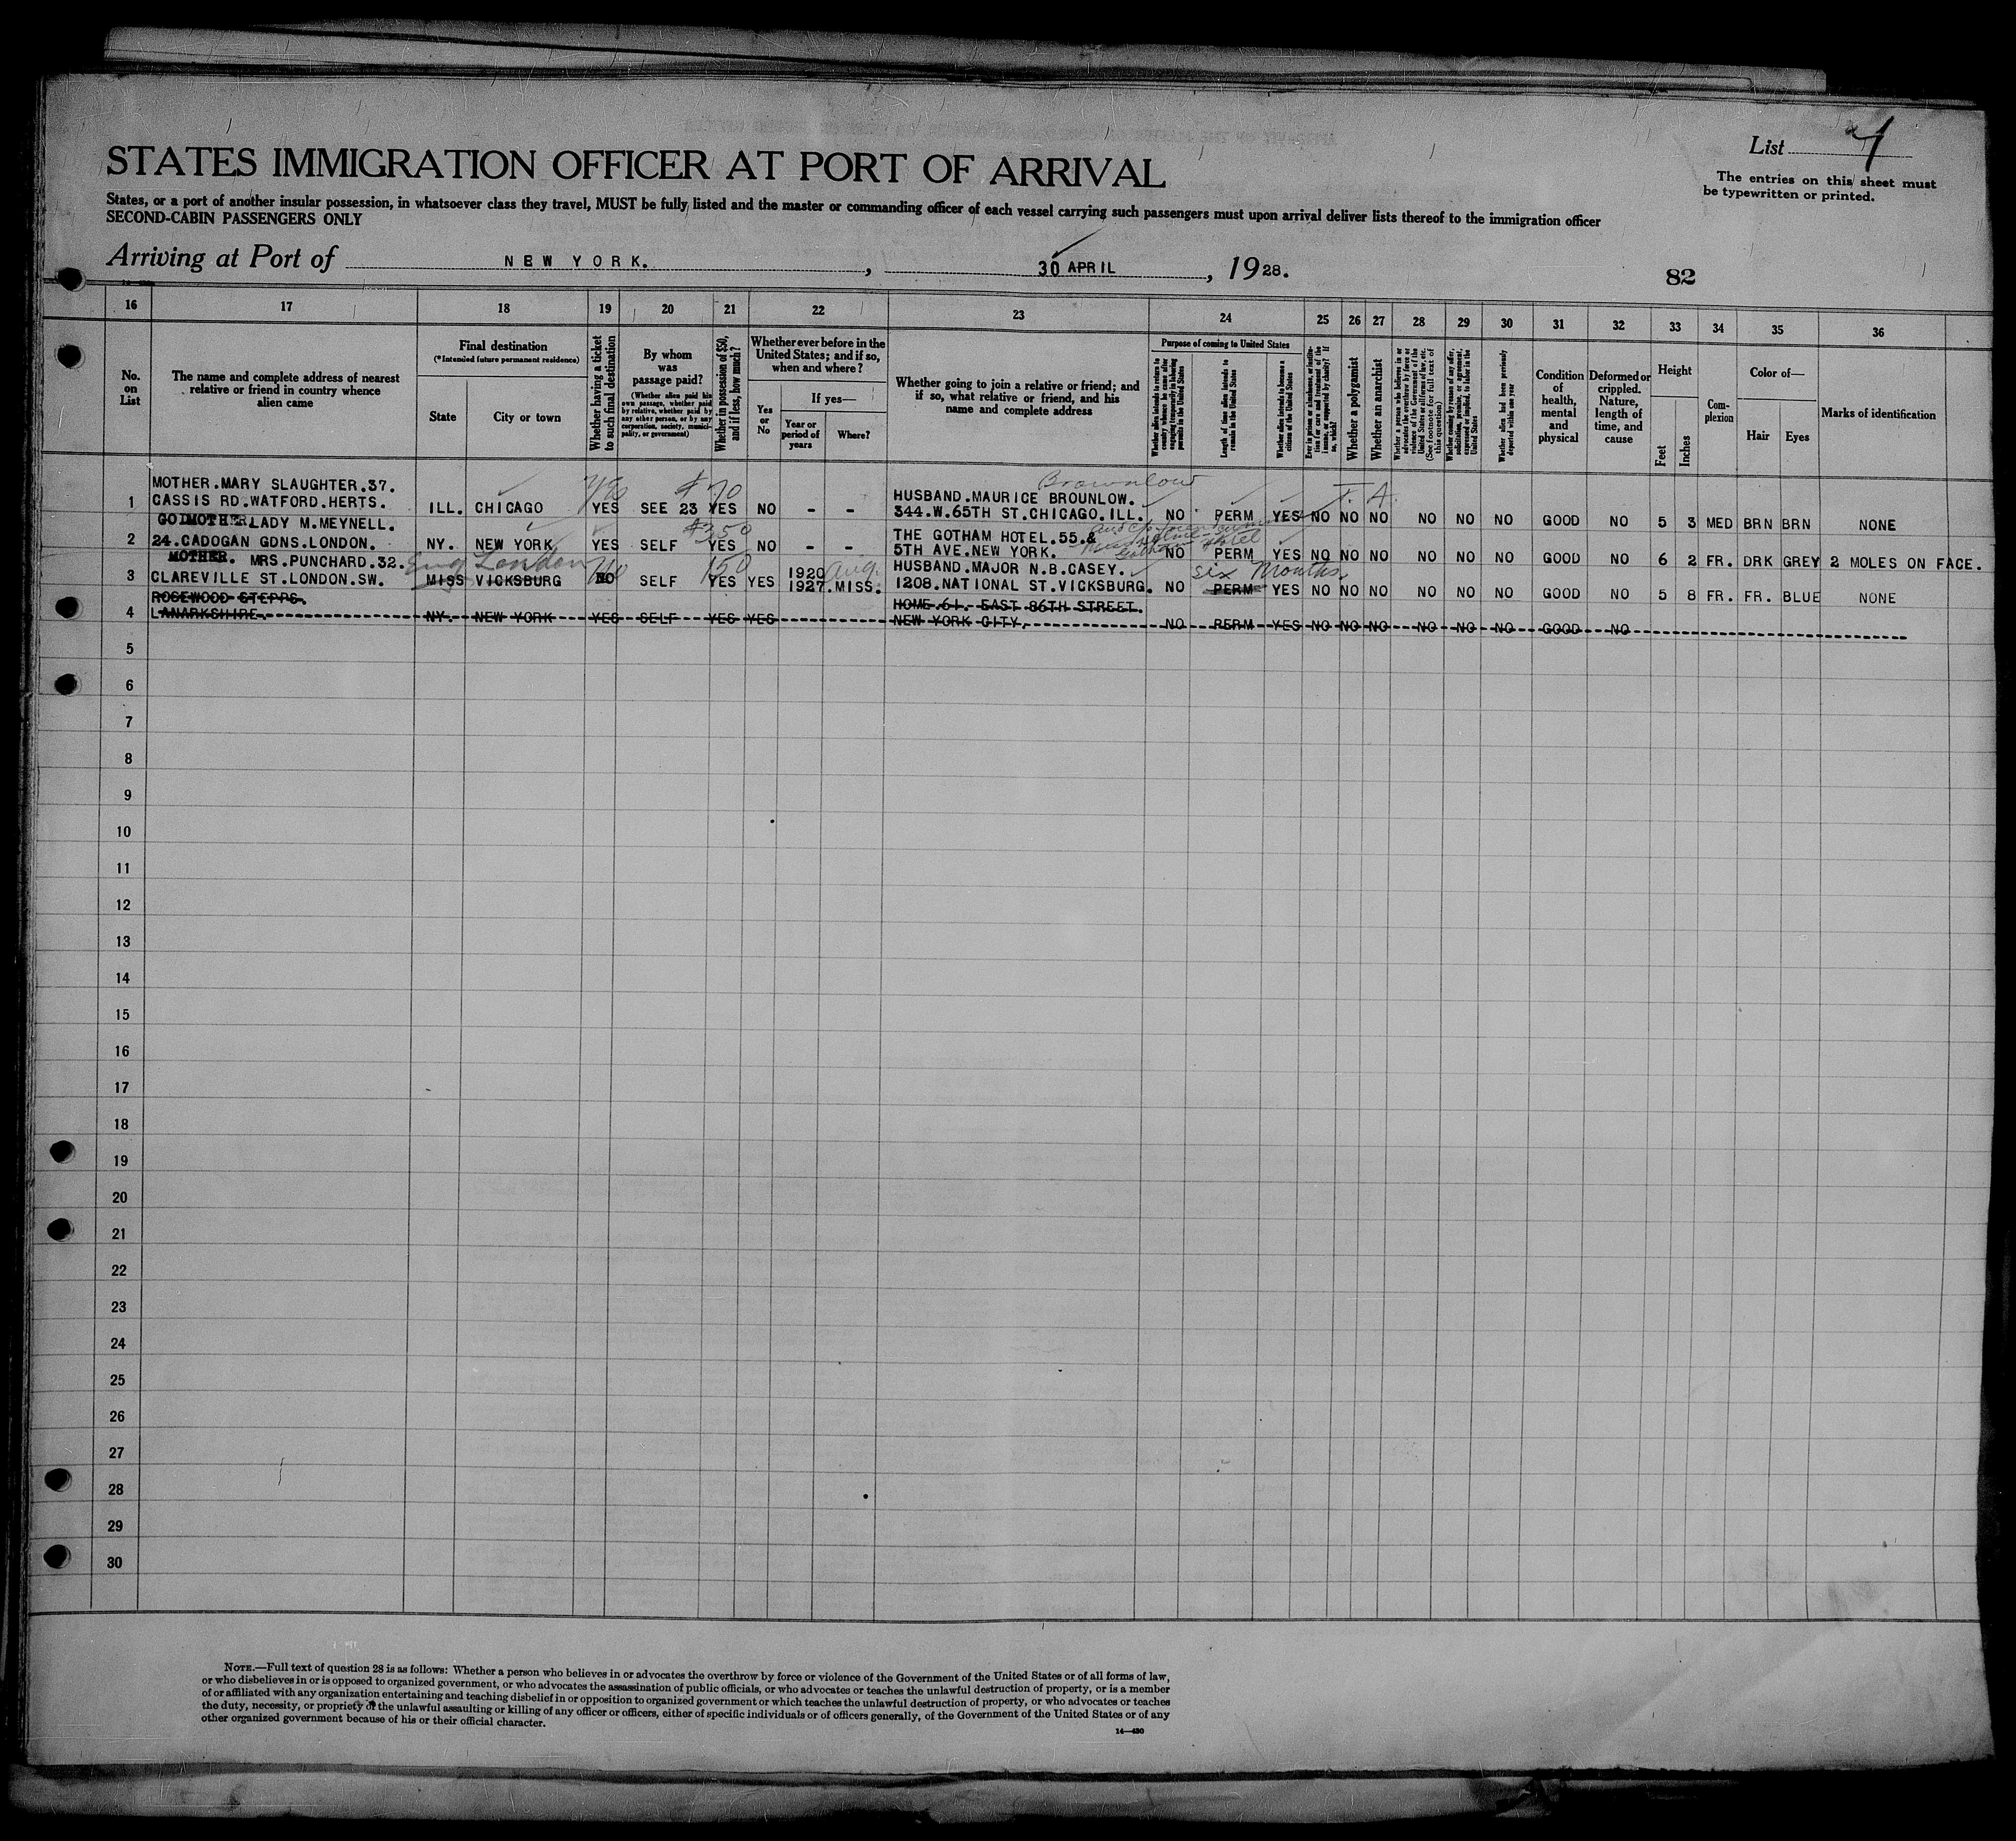 List 4
The entries on this sheet must
be typewritten or printed.
STATES IMMIGRATION OFFICER AT PORT OF ARRIVAL
States, or a port of another insular possession, in whatsoever class they travel, MUST be fully listed and the master or commanding officer of each vessel carrying such passengers must upon arrival deliver lists thereof to the immigration officer
SECOND-CABIN PASSENGERS ONLY
Arriving at Port of NEW YORK. , 30 APRIL , 1928.
82
16 17 18 19 20 21 22 23 24 25 26 27 28 29 30 31 32 33 34 35 36
No. on List
The name and complete address of nearest
relative or friend in country whence
alien came
Final destination
(*Intended future permanent residence)
State
City or town
Whether having a ticket
to such final destination
By whom
was
passage paid?
(Whether alien paid his
own passage, whether paid
by relative, whether paid by
any other person, or by any
corporation, society, munici-
pality, or government)
Whether in possession of $50,
and if less, how much?
Whether ever before in the
United States; and if so,
when and where?
Yes
or
No
If yes—
Year or
period of
years
Where?
Whether going to join a relative or friend; and
if so, what relative or friend, and his
name and complete address
Purpose of coming to United States
Whether alien intends to return to
country whence he came after
engaging temporarily in laboring
pursuits in the United States
Length of time alien intends to
remain in the United States
Whether alien intends to become a
citizen of the United States
Ever in prison or almshouse, or institu-
tion for care and treatment of the
insane, or supported by charity? If
so, which?
Whether a polygamist
Whether an anarchist
Whether a person who believes in or
advocates the overthrow by force or
violence of the Government of the
United States or all forms of law, etc.
(See footnote for full text of
this question)
Whether coming by reason of any offer,
solicitation, promise, or agreement,
expressed or implied, to labor in the
United States
Whether alien had been previously
deported within one year
Condition
of
health,
mental
and
physical
Deformed or
crippled.
Nature,
length of
time, and
cause
Height
Feet
Inches
Com-
plexion
Color of—
Hair
Eyes
Marks of identification
Brownlow
MOTHER.MARY SLAUGHTER.37. $70 T. A.
1 CASSIS RD.WATFORD.HERTS. ILL. CHICAGO YES SEE 23 YES NO - - HUSBAND.MAURICE BROUNLOW.
344.W.65TH ST.CHICAGO.ILL. NO PERM YES NO NO NO NO NO NO GOOD NO 5 3 MED BRN BRN NONE
GODMOTHER LADY M.MEYNELL. $350
2 24.CADOGAN GDNS.LONDON. NY. NEW YORK YES SELF YES NO - - THE GOTHAM HOTEL.55.&
5TH AVE.NEW YORK. Gotham Hotel NO PERM YES NO NO NO NO NO NO GOOD NO 6 2 FR. DRK GREY 2 MOLES ON FACE.
MOTHER. MRS.PUNCHARD.32. Eng London No 150 1920 Aug. HUSBAND.MAJOR N.B.CASEY. Six Months
3 CLAREVILLE ST.LONDON.SW. MISS VICKSBURG NO SELF YES YES 1927.MISS. 1208.NATIONAL ST.VICKSBURG. NO PERM YES NO NO NO NO NO NO GOOD NO 5 8 FR. FR. BLUE NONE
ROSEWOOD STEPPS. HOME.61. EAST 86TH STREET.
4 LANARKSHIRE. NY. NEW YORK YES SELF YES YES NEW YORK CITY. NO PERM YES NO NO NO NO NO NO GOOD NO
5
6
7
8
9
10
11
12
13
14
15
16
17
18
19
20
21
22
23
24
25
26
27
28
29
30
NOTE.—Full text of question 28 is as follows: Whether a person who believes in or advocates the overthrow by force or violence of the Government of the United States or of all forms of law,
or who disbelieves in or is opposed to organized government, or who advocates the assassination of public officials, or who advocates or teaches the unlawful destruction of property, or is a member
of or affiliated with any organization entertaining and teaching disbelief in or opposition to organized government or which teaches the unlawful destruction of property, or who advocates or teaches
the duty, necessity, or propriety of the unlawful assaulting or killing of any officer or officers, either of specific individuals or of officers generally, of the Government of the United States or of any
other organized government because of his or their official character.
14—430